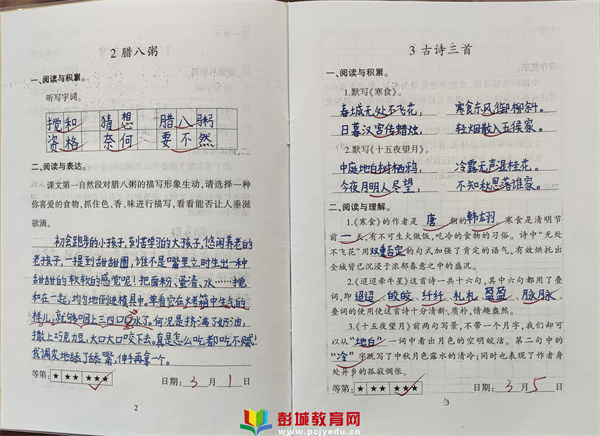 2 腊八粥
一、阅读与积累。
听写字词。
搅和 猜想 腊八粥
资格 奈何 要不然
二、阅读与表达。
课文第一自然段对腊八粥的描写形象生动,请选择一种
你喜爱的食物,抓住色、香、味进行描写,看看能否让人垂涎
欲滴。
初会跑步的小孩子,刻苦学习的大孩子,悠闲养老的
老孩子,一提到甜甜圈,谁不是嘴里立时生出一种
甜甜的软软的感觉呢!把面粉、蛋清、水
和在一起,均匀地倒进模具中,单看它在火
样儿,就够咽上三四口口水了。何况是挤满了奶油,
撒上巧克力豆,大口大口咬下去。真是怎么吃,都吃不腻!
我调皮地舔了舔嘴,伸手再拿一个。
等第: ★ ★★ ★★★ 日期: 3 月 1 日
2
3 古诗三首
一、阅读与积累。
1.默写《寒食》。
春城无处不飞花, 寒食东风御柳斜。
日暮汉宫传蜡烛, 轻烟散入五侯家。
2.默写《十五夜望月》。
中庭地白树栖鸦, 冷露无声湿桂花。
今夜月明人尽望, 不知秋思落谁家。
二、阅读与理解。
1.《寒食》的作者是 唐 朝的 韩翃。寒食是清明节
前一天,有不可生火做饭,吃冷的食物的习俗。诗中“无处
不飞花”用双重否定的句式加强了肯定的语气,有效烘托出
全城皆已沉浸于浓郁春意之中的盛况。
2.《迢迢牵牛星》这首诗一共十六句,其中六句都用了叠
词,即 迢迢、皎皎、纤纤、札札、盈盈、脉脉。
叠词的使用使这首诗十分清新、质朴,情趣盎然。
3.《十五夜望月》前两句写景,不带一个月字,我们却可
以从“地白”一词中看出月色的空明皎洁。第二句中的
“冷”字既写了中秋月色露水的清冷;同时也表现了作者身
处异乡的孤寂惆怅。
等第: ★ ★★ ★★★ 日期: 3 月 5 日
3
彭城教育网
www.pcjyedu.cn